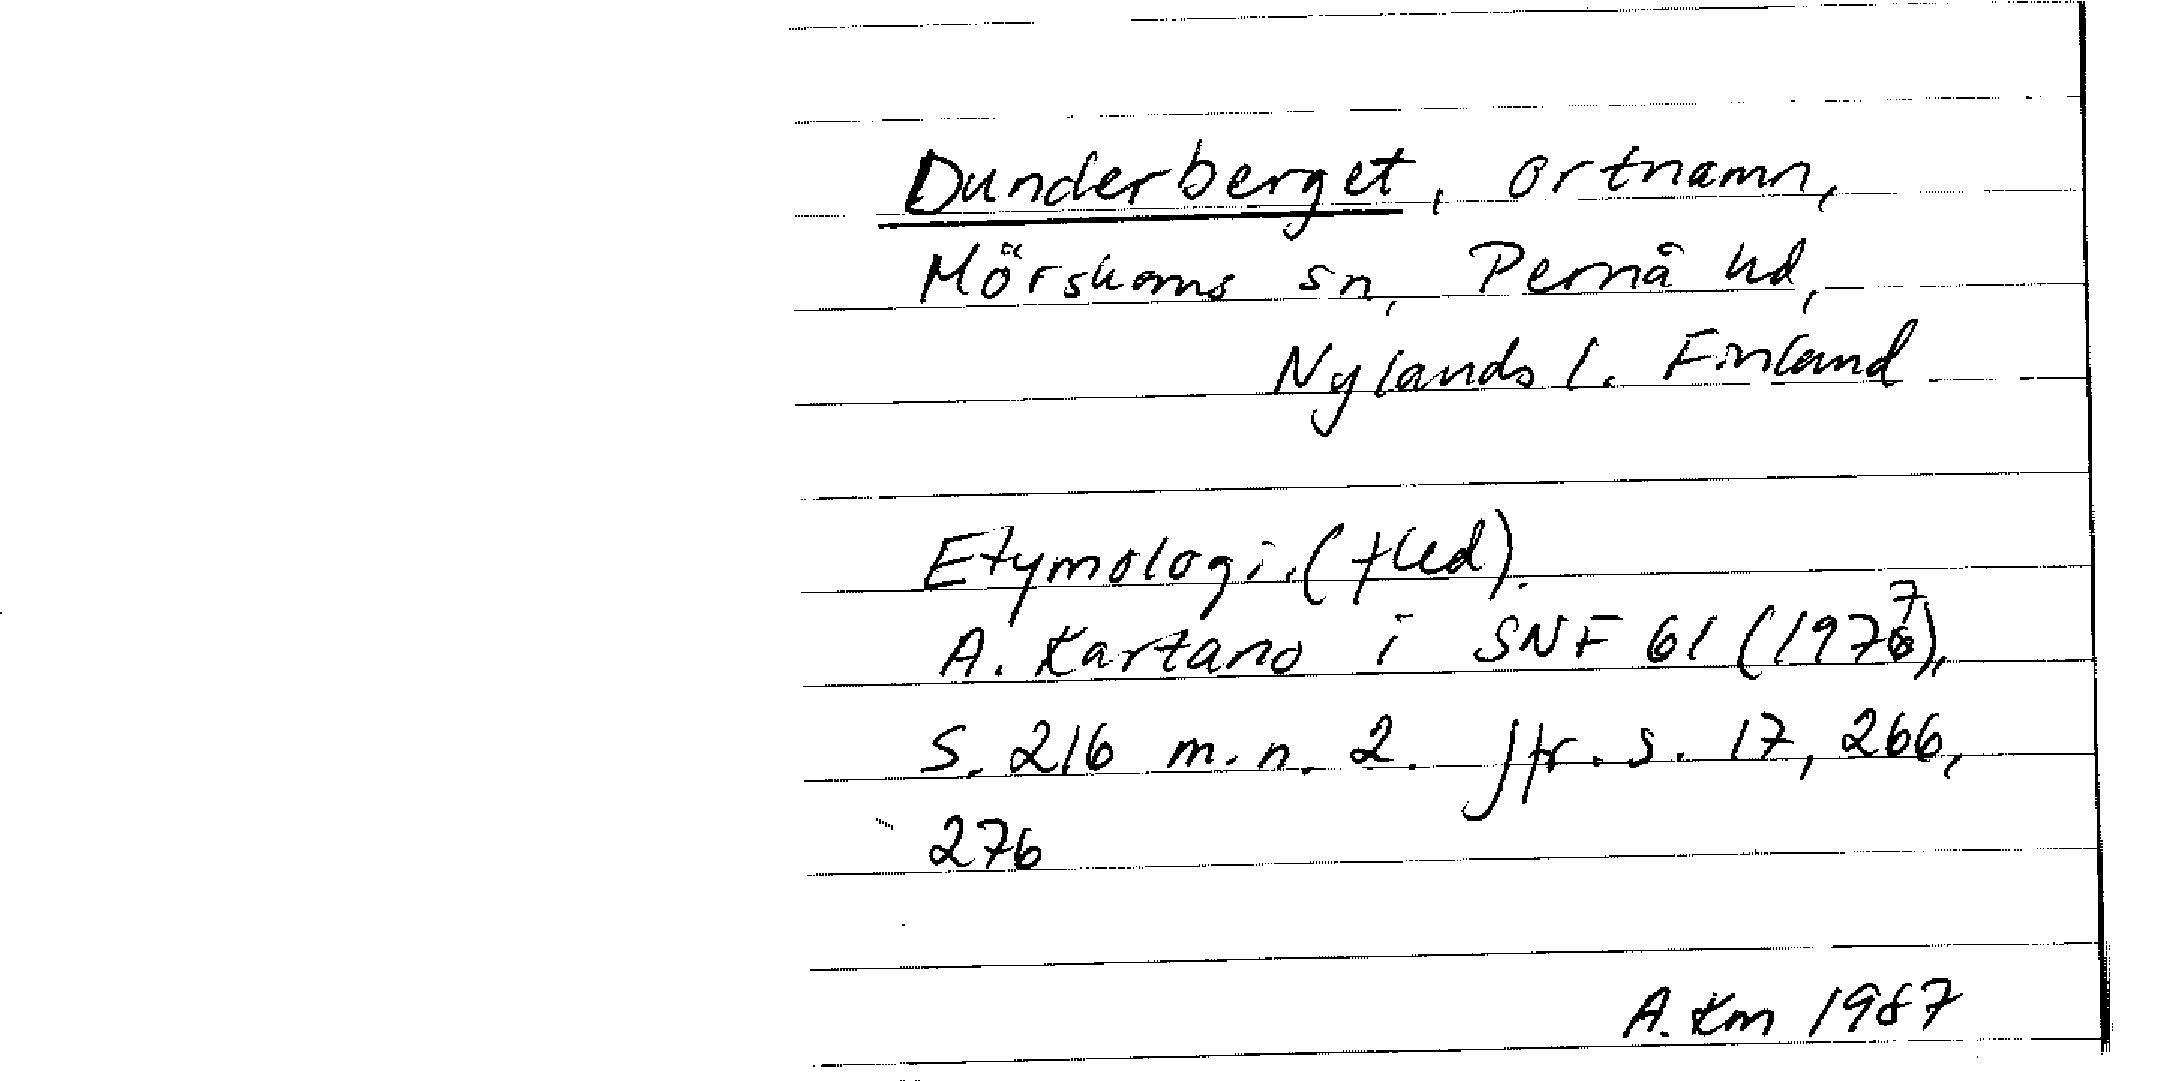 Dunderberget, ortnamn,
Mörskoms sn, Pernå hd,
Nylands l. Finland
Etymologi. (fled).
A. Kartano i SNF 61 (1977),
S. 216 m. n. 2. Jfr. s. 17, 266,
276
A. Km 1987